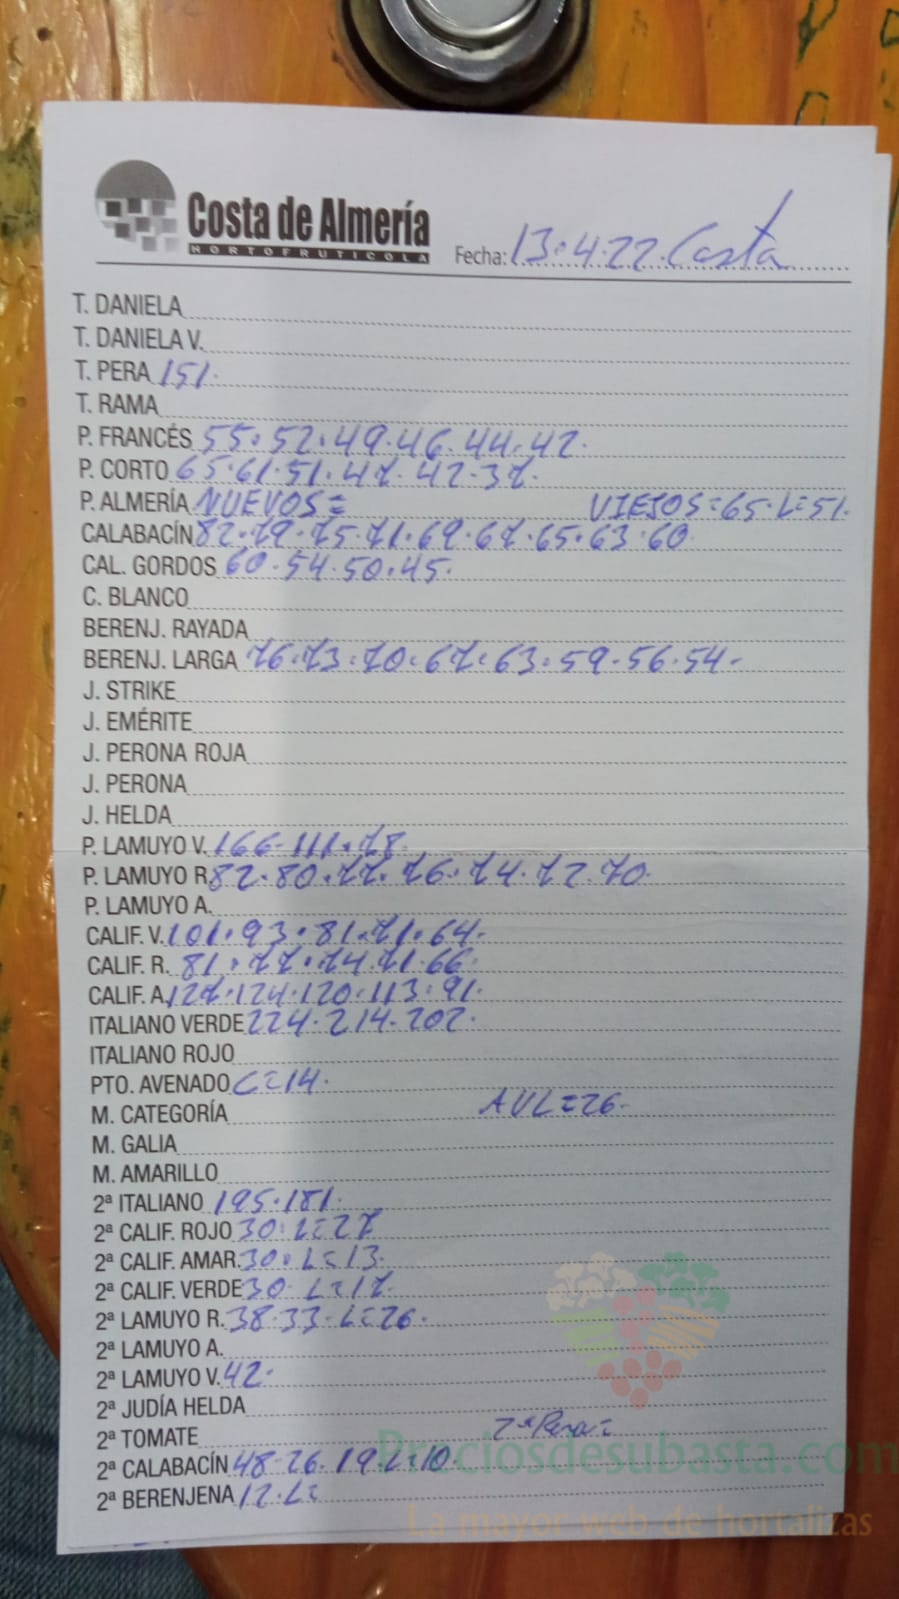 Costa de Almería
HORTOFRUTICOLA
Fecha: 13.4.22. Costa
T. DANIELA
T. DANIELA V.
T. PERA 151.
T. RAMA
P. FRANCÉS 55.52.49.46.44.42.
P. CORTO 65.61.51.47.42.37.
P. ALMERÍA NUEVOS= VIEJOS=65.L=51.
CALABACÍN 82.79.75.71.69.67.65.63.60.
CAL. GORDOS 60.54.50.45.
C. BLANCO
BERENJ. RAYADA
BERENJ. LARGA 76.73.70.67.63.59.56.54-
J. STRIKE
J. EMÉRITE
J. PERONA ROJA
J. PERONA
J. HELDA
P. LAMUYO V. 166-111.78.
P. LAMUYO R 82.80.77.76.74.72.70.
P. LAMUYO A.
CALIF. V. 101.93.81.71.64.
CALIF. R. 81.77.74.71.66.
CALIF. A. 127.124.120.113.91.
ITALIANO VERDE 224.214.202.
ITALIANO ROJO
PTO. AVENADO C=14.
M. CATEGORÍA AVL=26-
M. GALIA
M. AMARILLO
2ª ITALIANO 195.181.
2ª CALIF. ROJO 30.L=27
2ª CALIF. AMAR. 30.L=13.
2ª CALIF. VERDE 30. L=17.
2ª LAMUYO R. 38.33.L=26.
2ª LAMUYO A.
2ª LAMUYO V. 42.
2ª JUDÍA HELDA
2ª TOMATE 2ª Pera=
2ª CALABACÍN 48.26.19.L=10.
2ª BERENJENA 12.L=
Preciosdesubasta.com
La mayor web de hortalizas